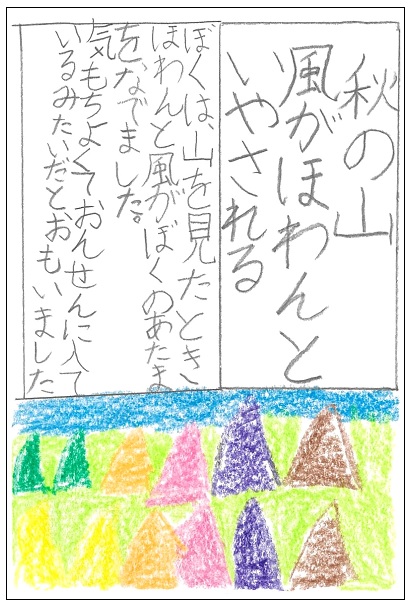 秋の山
風がほわんと
いやされる
ぼくは、山を見たとき、
ほわんと風がぼくのあたま
を、なでました。
気もちよくておんせんに入て
いるみたいだとおもいました